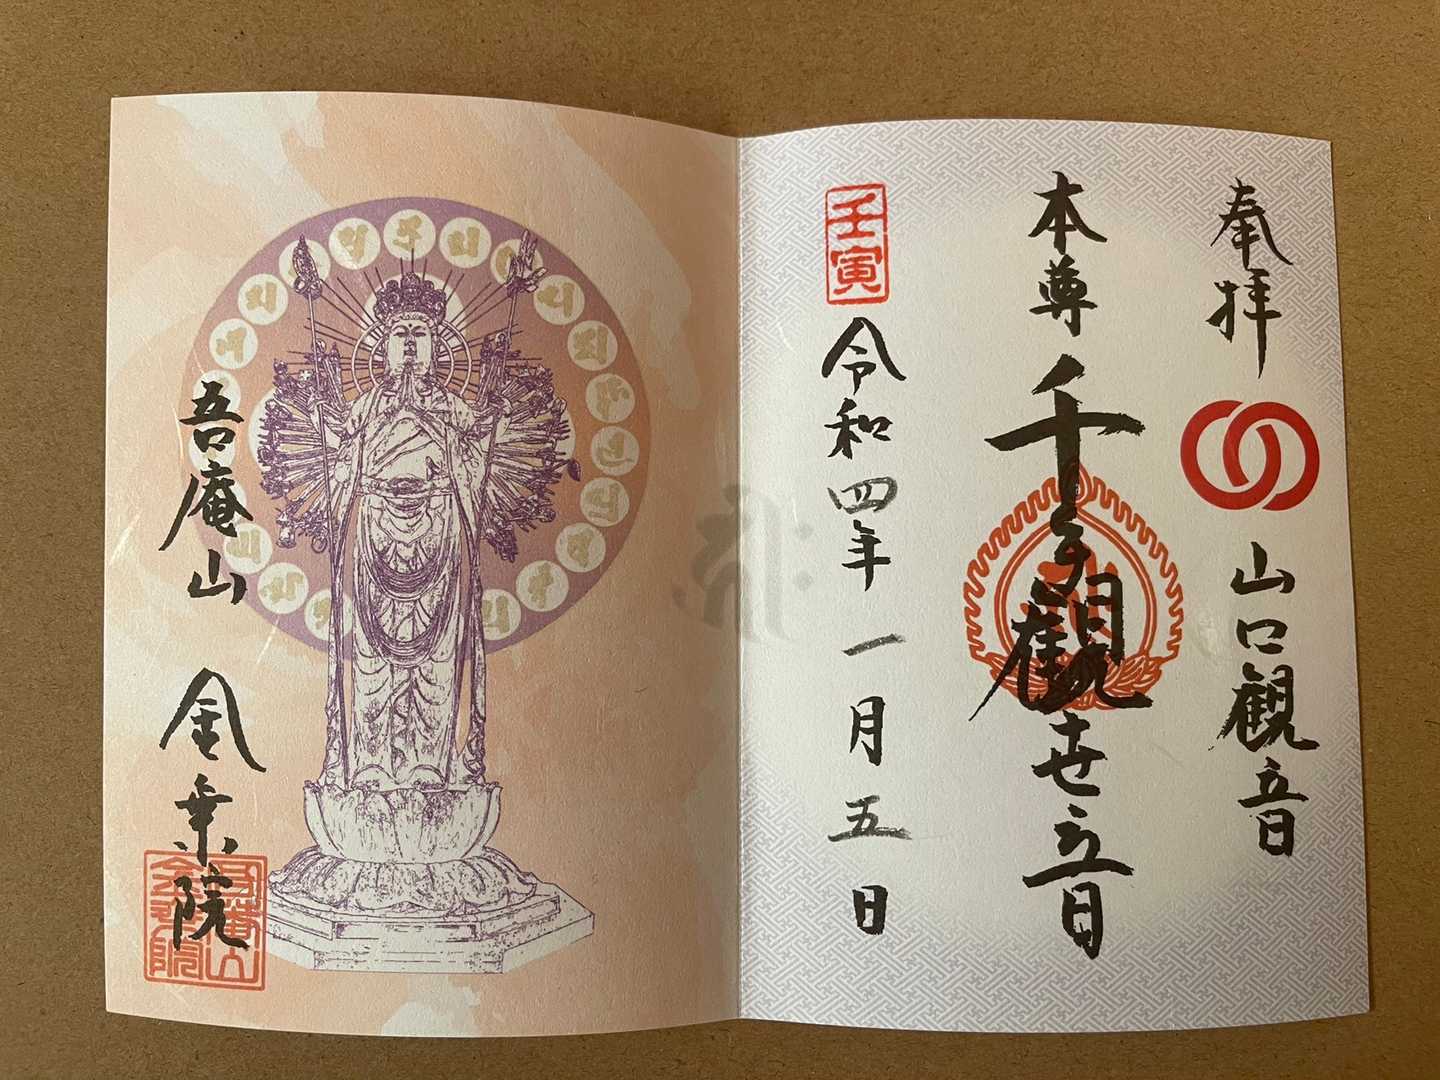 奉拝
山口観音
本尊 千手観世音
壬寅
令和四年一月五日
吾庵山 金乗院
吾庵山
金乗院